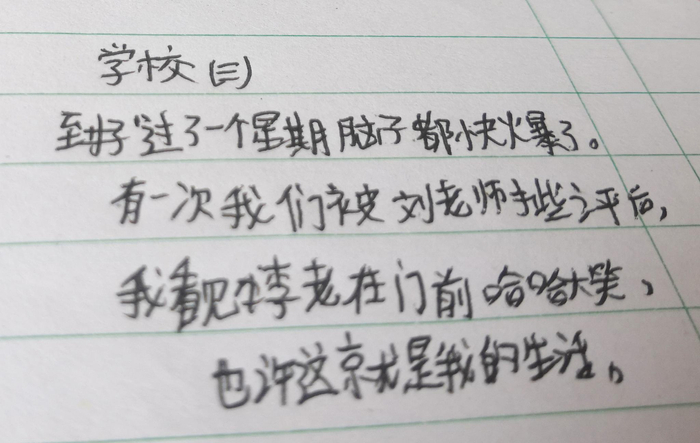 学校(三)
至好过了一个星期脑子都快火暴了。
有一次我们被刘老师批评后,
我看见李老在门前哈哈大笑,
也许这就是我的生活。